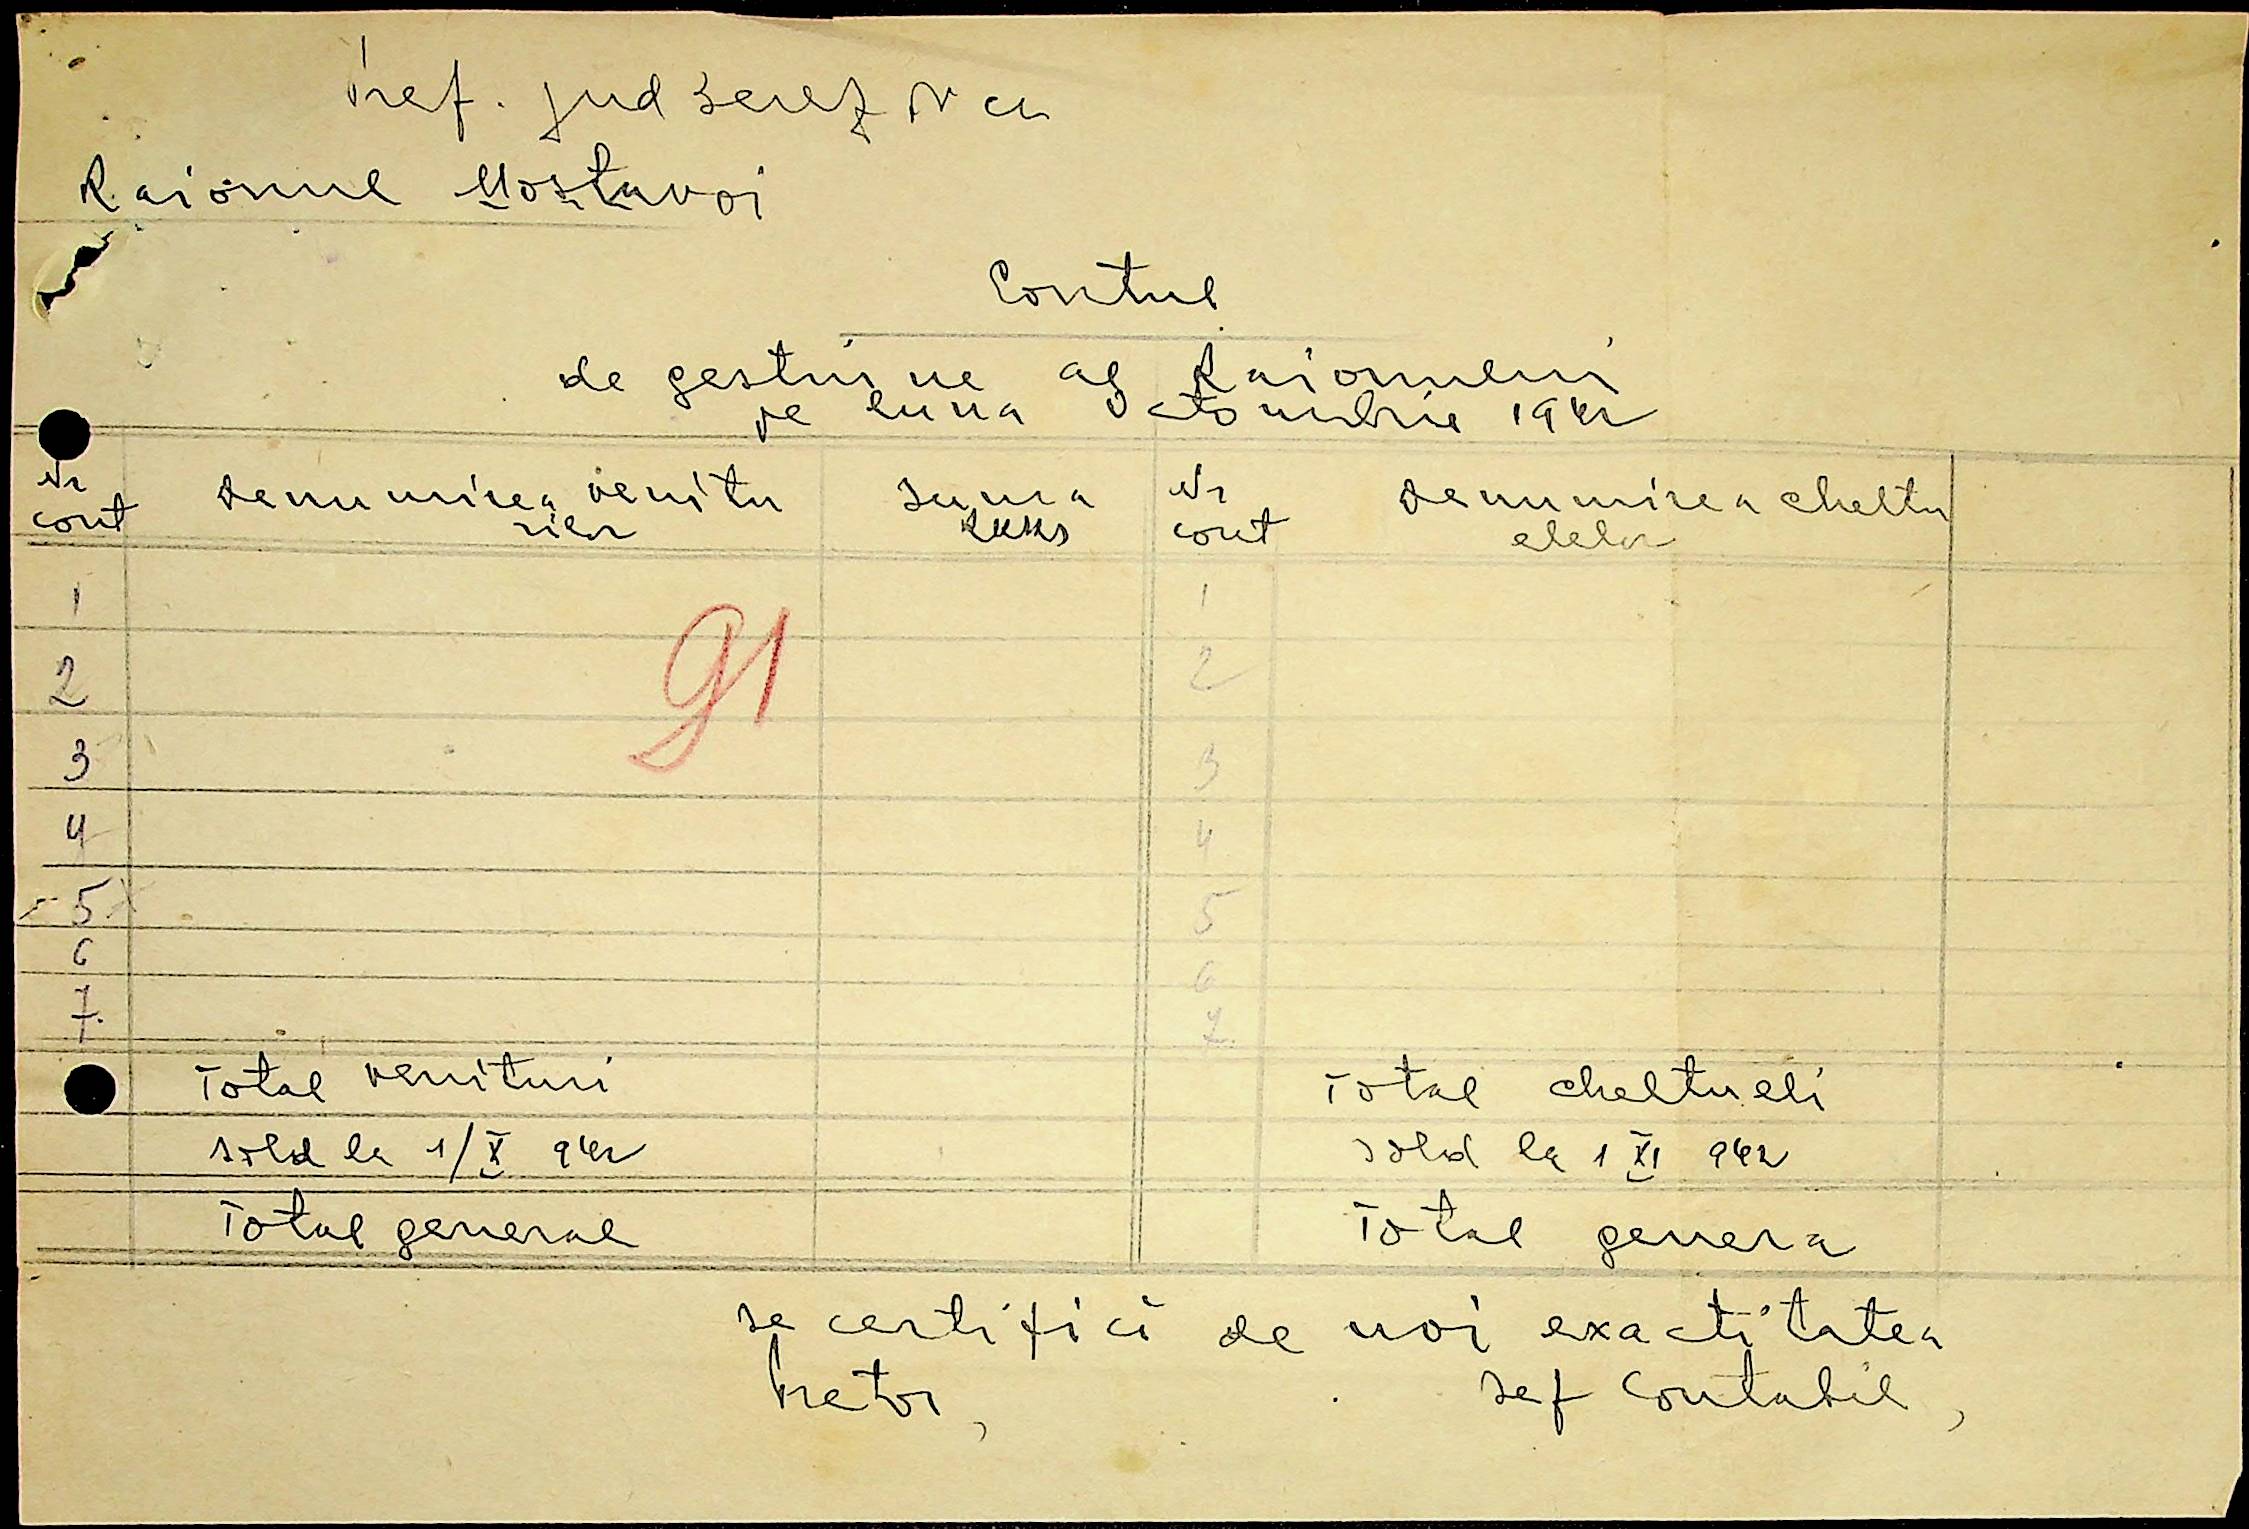 Pref. jud Berez N cu
Raionul Mostovoi
Contul
de gestiune al Raionului
pe luna Octombrie 1942
Nr cont
Denumirea venitu
rilor
Suma
RKKS
Nr cont
Denumirea cheltu
elelor
1 1
2 91 2
3 3
4 4
5 5
6 6
7. 7.
Total venituri Total cheltueli
sold la 1/X 942 sold la 1 XI 942
Total general Total genera
se certifică de noi exactitatea
Pretor, sef Contabil,